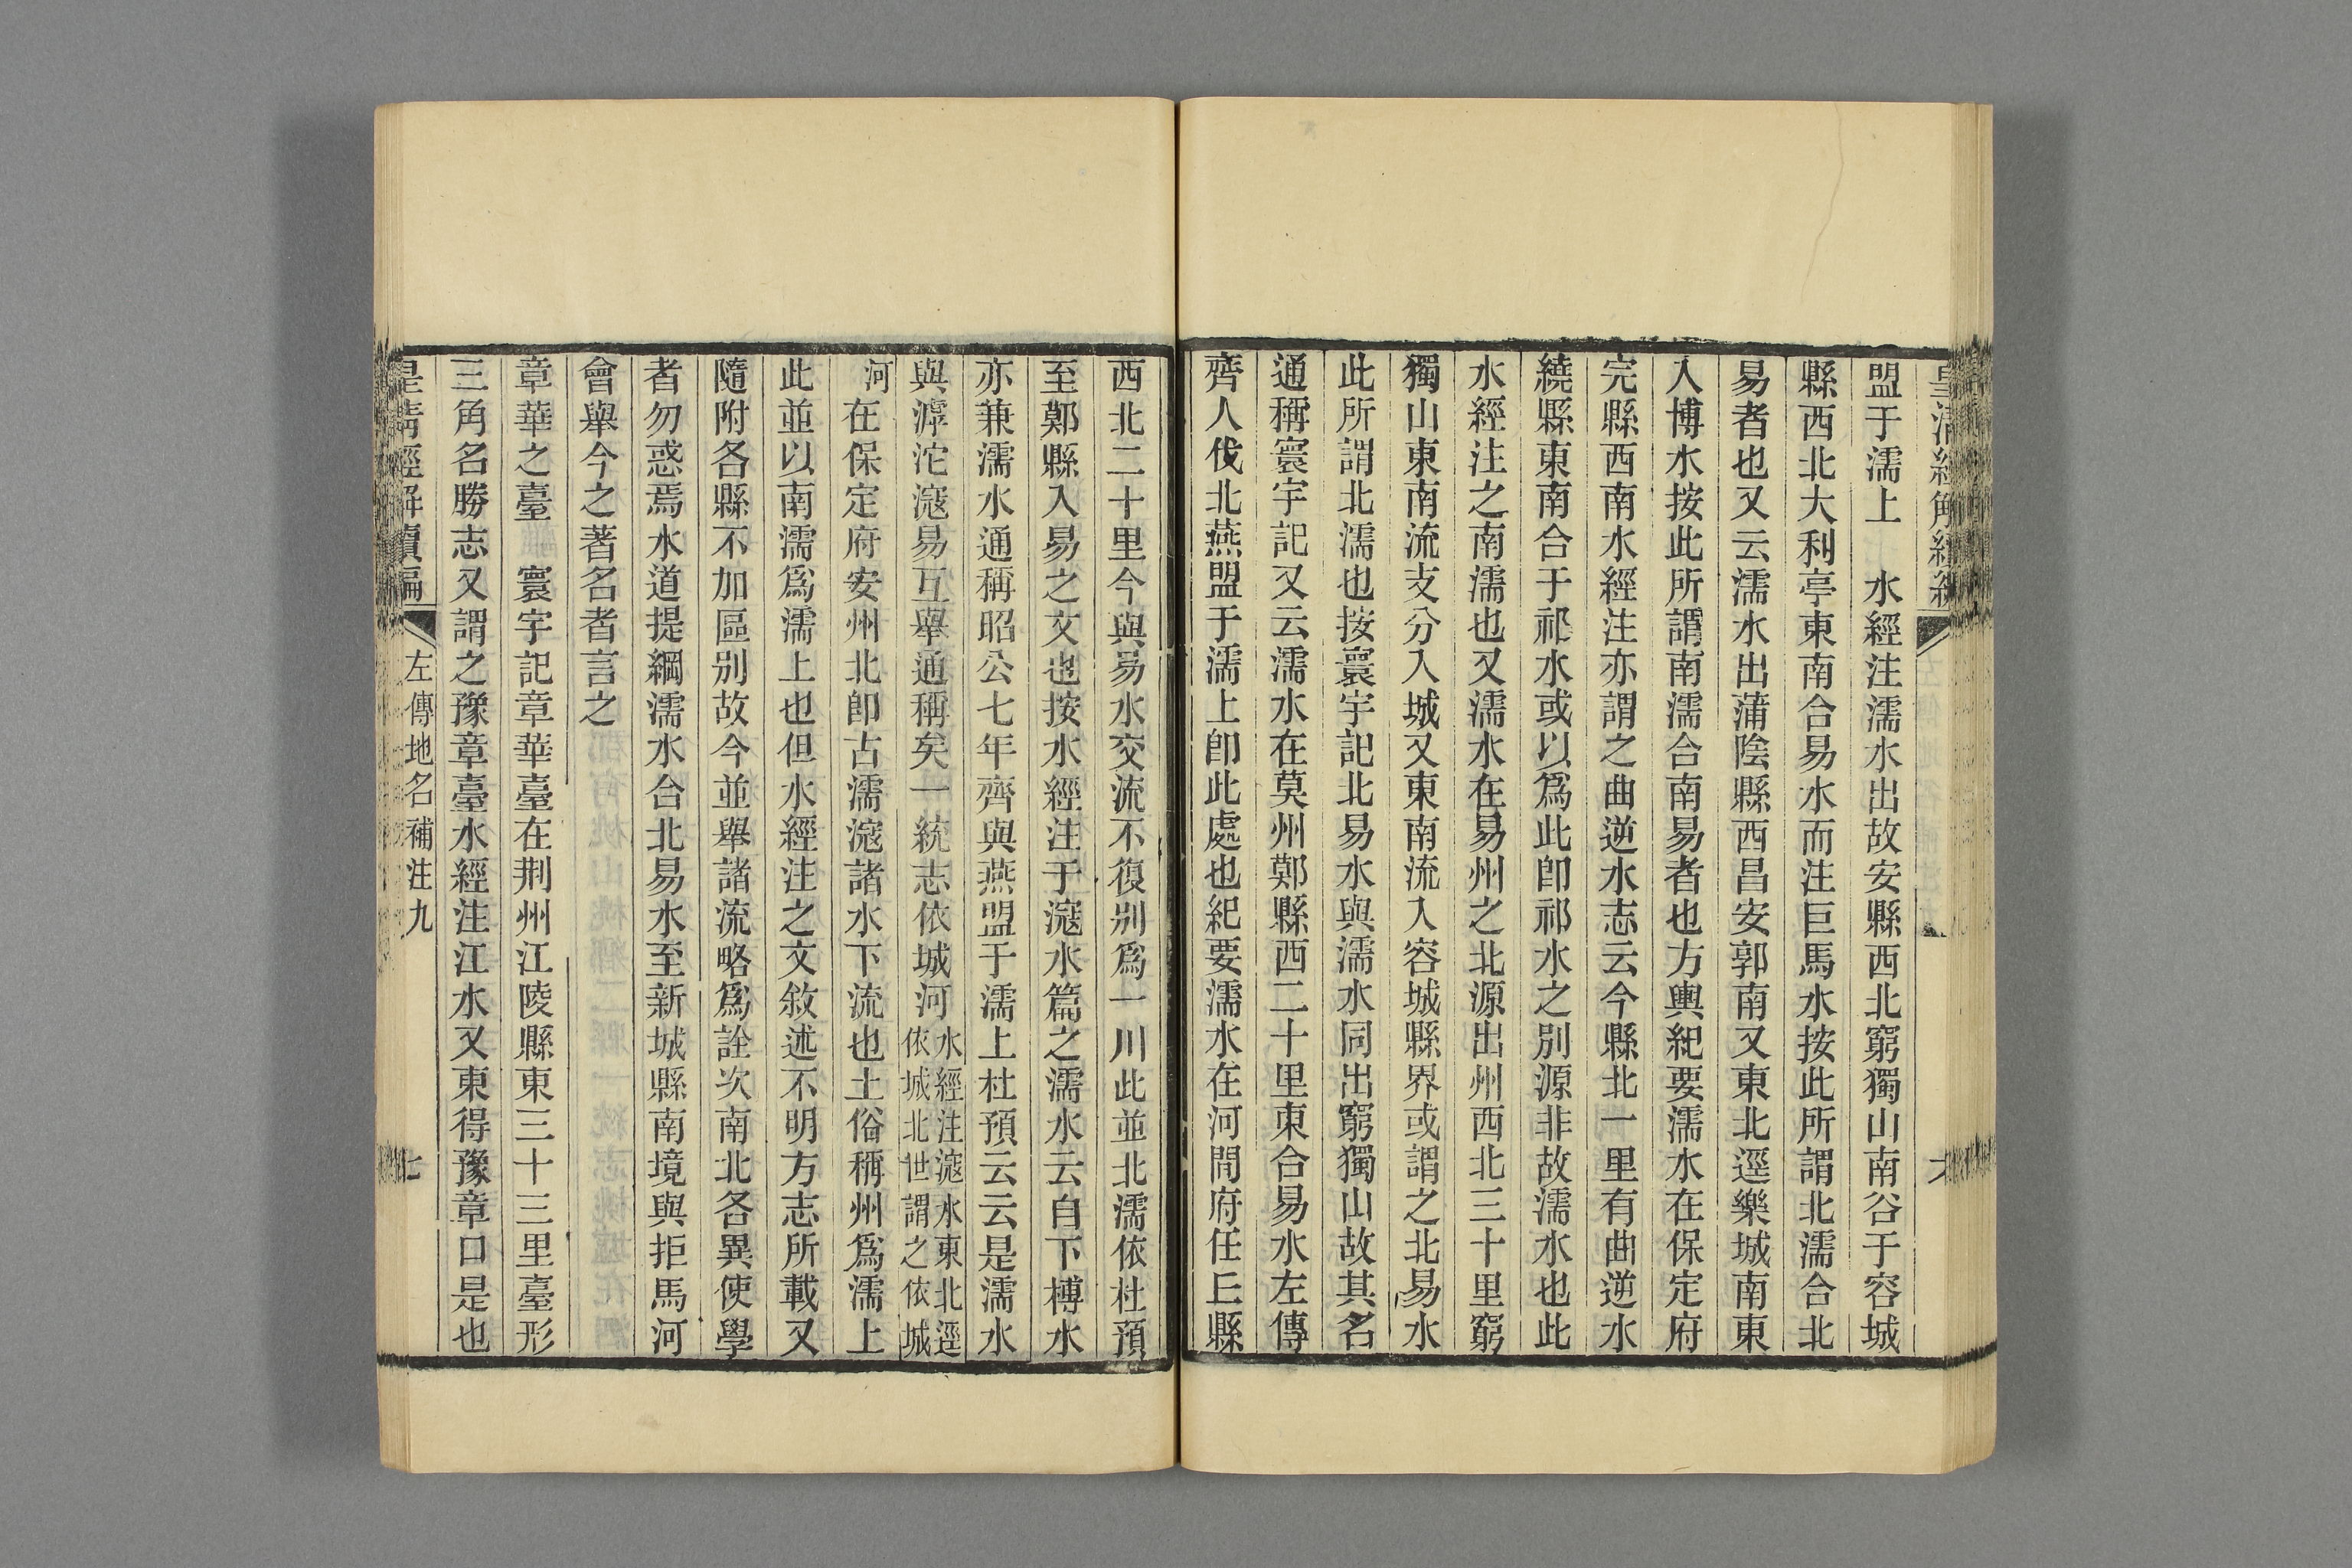 盟于濡上　水經注濡水出故安縣西北窮獨山南谷于容城
縣西北大利亭東南合易水而注巨馬水按此所謂北濡合北
易者也又云濡水出蒲陰縣西昌安郭南又東北逕樂城南東
入博水按此所謂南濡合南易者也方輿紀要濡水在保定府
完縣西南水經注亦謂之曲逆水志云今縣北一里有曲逆水
繞縣東南合于祁水或以爲此卽祁水之別源非故濡水也此
水經注之南濡也又濡水在易州之北源出州西北三十里窮
獨山東南流支分入城又東南流入容城縣界或謂之北易水
此所謂北濡也按寰宇記北易水與濡水同出窮獨山故其名
通稱寰宇記又云濡水在莫州鄚縣西二十里東合易水左傳
齊人伐北燕盟于濡上卽此處也紀要濡水在河閒府任丘縣
西北二十里今與易水交流不復別爲一川此並北濡依杜預
至鄚縣入易之文也按水經注于滱水篇之濡水云自下榑水
亦兼濡水通稱昭公七年齊與燕盟于濡上杜預云云是濡水
與滹沱滱易互舉通稱矣一統志依城河水經注滱水東北逕依城北世謂之依城
河在保定府安州北卽古濡滱諸水下流也土俗稱州爲濡上
此並以南濡爲濡上也但水經注之文敘述不明方志所載又
隨附各縣不加區別故今並舉諸流略爲詮次南北各異使學
者勿惑焉水道提綱濡水合北易水至新城縣南境與拒馬河
會舉今之著名者言之
章華之臺　寰宇記章華臺在荆州江陵縣東三十三里臺形
三角名勝志又謂之豫章臺水經注江水又東得豫章口是也
皇清經解續編　左傳地名補注九　七